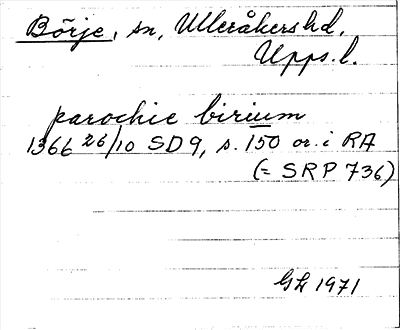 Börje, sn, Ulleråkers hd,
Upps. l.
parochie birium
1366 26/10 SD9, s. 150 or. i RA
(= SRP 736)
GH 1971